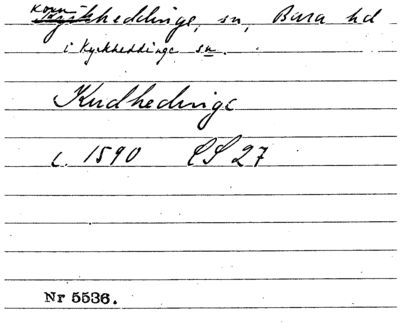 Kornheddinge, sn, Bara hd
i Kyrkheddinge sn.
Kudhedinge
c. 1590 LS 27
Nr 5536.